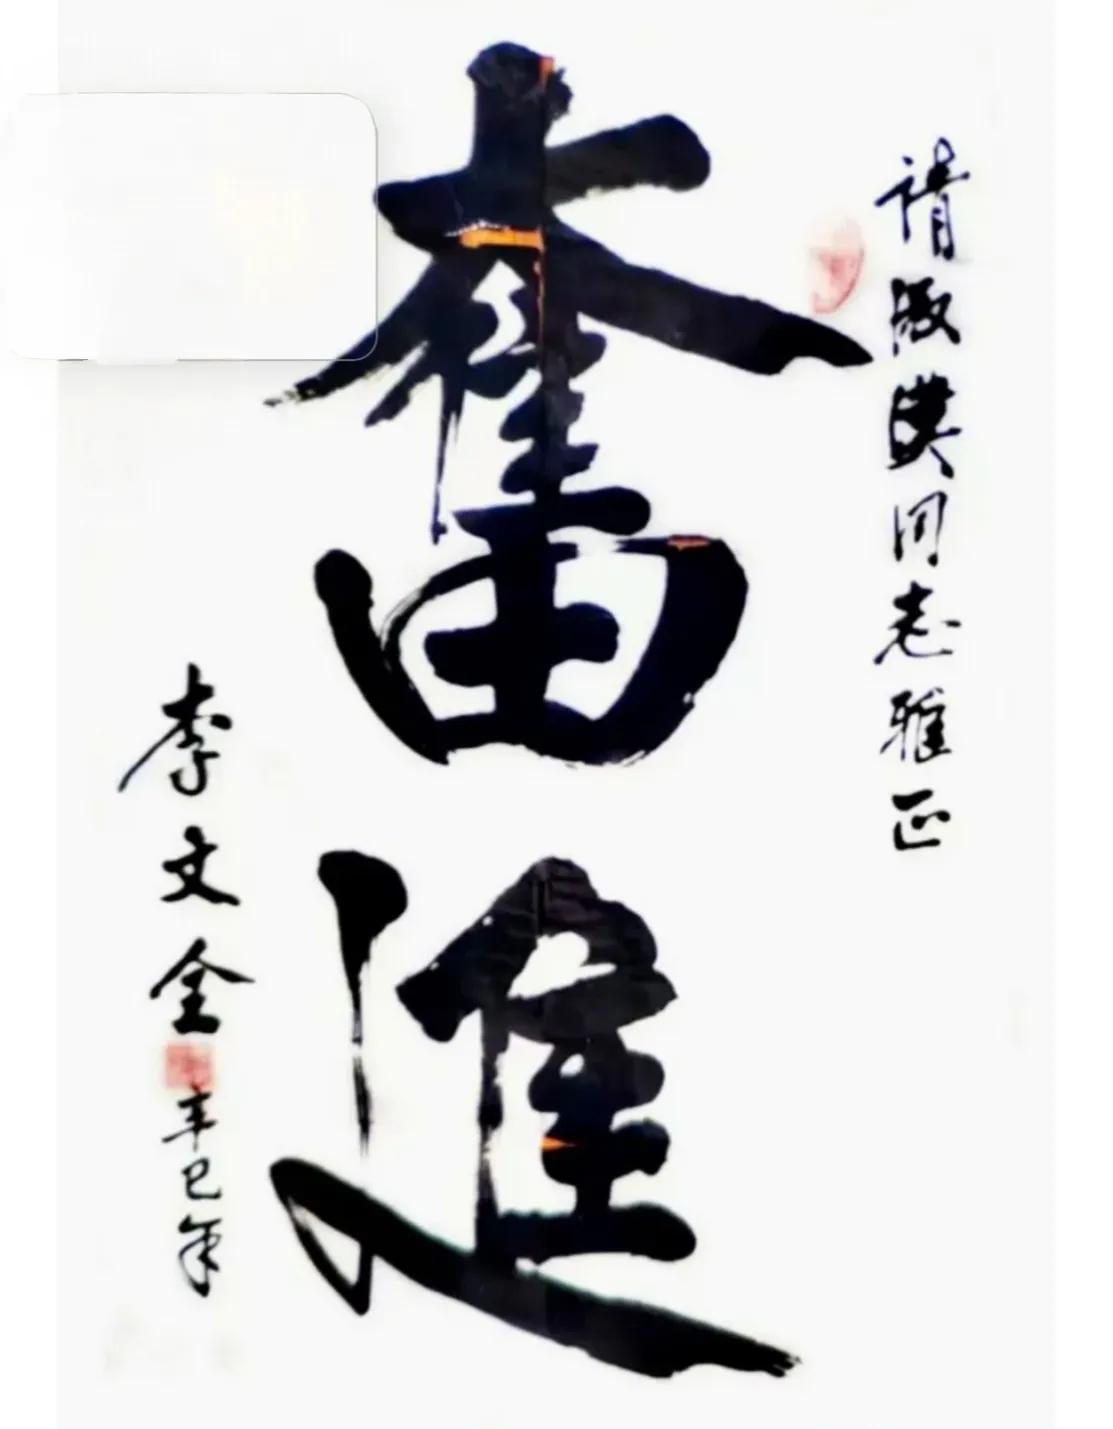 請淑漢同志雅正
奮進
李文全
辛巳年